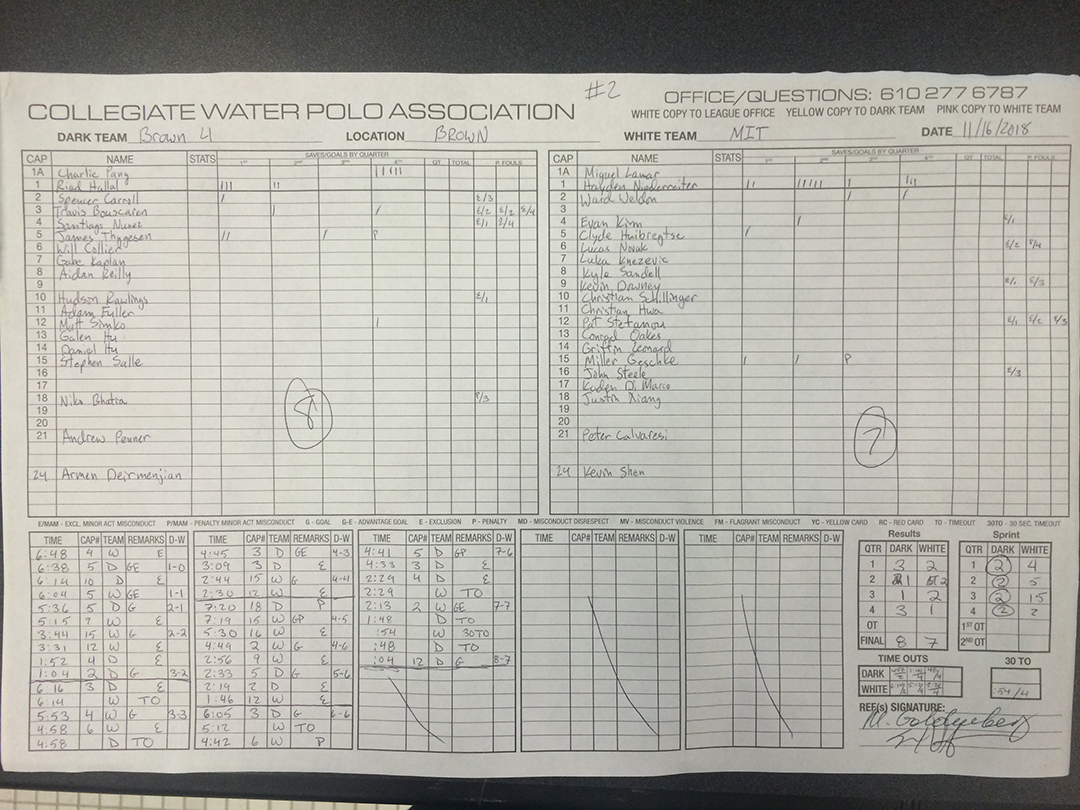 #2
COLLEGIATE WATER POLO ASSOCIATION
OFFICE/QUESTIONS: 610 277 6787
WHITE COPY TO LEAGUE OFFICE YELLOW COPY TO DARK TEAM PINK COPY TO WHITE TEAM
DARK TEAM Brown LOCATION BROWN WHITE TEAM MIT DATE 11/16/2018
CAP NAME STATS SAVES/GOALS BY QUARTER 1ST 2ND 3RD 4TH QT TOTAL P. FOULS
1A Charlie Pang
1 Riad Hallal
2 Spencer Carroll E/3
3 Travis Bouscaren E/2 E/2 E/4
4 Santiago Nunez E/1 E/4
5 James Thygesen P
6 Will Collier
7 Gabe Kaplan
8 Aidan Reilly
9
10 Hudson Rawlings E/1
11 Adam Fuller
12 Matt Simko
13 Galen Hu
14 Daniel Hu
15 Stephen Salle
16
17
18 Niko Bhatia P/3
19
20
21 Andrew Penner
24 Armen Deirmenjian
8
CAP NAME STATS SAVES/GOALS BY QUARTER 1ST 2ND 3RD 4TH QT TOTAL P. FOULS
1A Miguel Lamar
1 Hayden Niederreiter
2 Ward Weldon
3
4 Evan Kim E/1
5 Clyde Huibregtse
6 Lucas Novak E/2 P/4
7 Luka Knezevic
8 Kyle Sandell
9 Kevin Downey E/1 E/3
10 Christian Schillinger
11 Christian Hwa
12 Pat Stefanou E/1 E/2 E/3
13 Conrad Oakes
14 Griffin Leonard
15 Miller Geschke P
16 John Steele E/3
17 Kaden Di Marco
18 Justin Xiang
19
20
21 Peter Calvaresi
24 Kevin Shen
7
E/MAM - EXCL. MINOR ACT MISCONDUCT P/MAM - PENALTY MINOR ACT MISCONDUCT G - GOAL G-E - ADVANTAGE GOAL E - EXCLUSION P - PENALTY MD - MISCONDUCT DISRESPECT MV - MISCONDUCT VIOLENCE FM - FLAGRANT MISCONDUCT YC - YELLOW CARD RC - RED CARD TO - TIMEOUT 30TO - 30 SEC. TIMEOUT
TIME CAP# TEAM REMARKS D-W
6:48 4 W E
6:38 5 D GE 1-0
6:14 10 D E
6:04 5 W GE 1-1
5:36 5 D G 2-1
5:15 9 W E
3:44 15 W G 2-2
3:31 12 W E
1:52 4 D E
1:04 2 D G 3-2
6:16 3 D E
6:14 W TO
5:53 4 W G 3-3
4:58 6 W E
4:58 D TO
TIME CAP# TEAM REMARKS D-W
4:45 3 D GE 4-3
3:09 3 D E
2:44 15 W G 4-4
2:30 12 W E
7:20 18 D P
7:19 15 W GP 4-5
5:30 16 W E
4:49 2 W G 4-6
2:56 9 W E
2:33 5 D G 5-6
2:19 2 D E
1:46 12 W E
6:05 3 D G 6-6
5:12 W TO
4:42 6 W P
TIME CAP# TEAM REMARKS D-W
4:41 5 D GP 7-6
4:33 3 D E
2:29 4 D E
2:29 W TO
2:13 2 W GE 7-7
1:48 D TO
:54 W 30TO
:48 D TO
:04 12 D G 8-7
TIME CAP# TEAM REMARKS D-W
TIME CAP# TEAM REMARKS D-W
Results
QTR DARK WHITE
1 3 2
2 1 2
3 1 2
4 3 1
OT
FINAL 8 7
Sprint
QTR DARK WHITE
1 2 4
2 2 5
3 2 15
4 2 2
1ST OT
2ND OT
TIME OUTS
DARK
WHITE
30 TO
:54/4
REF(s) SIGNATURE: